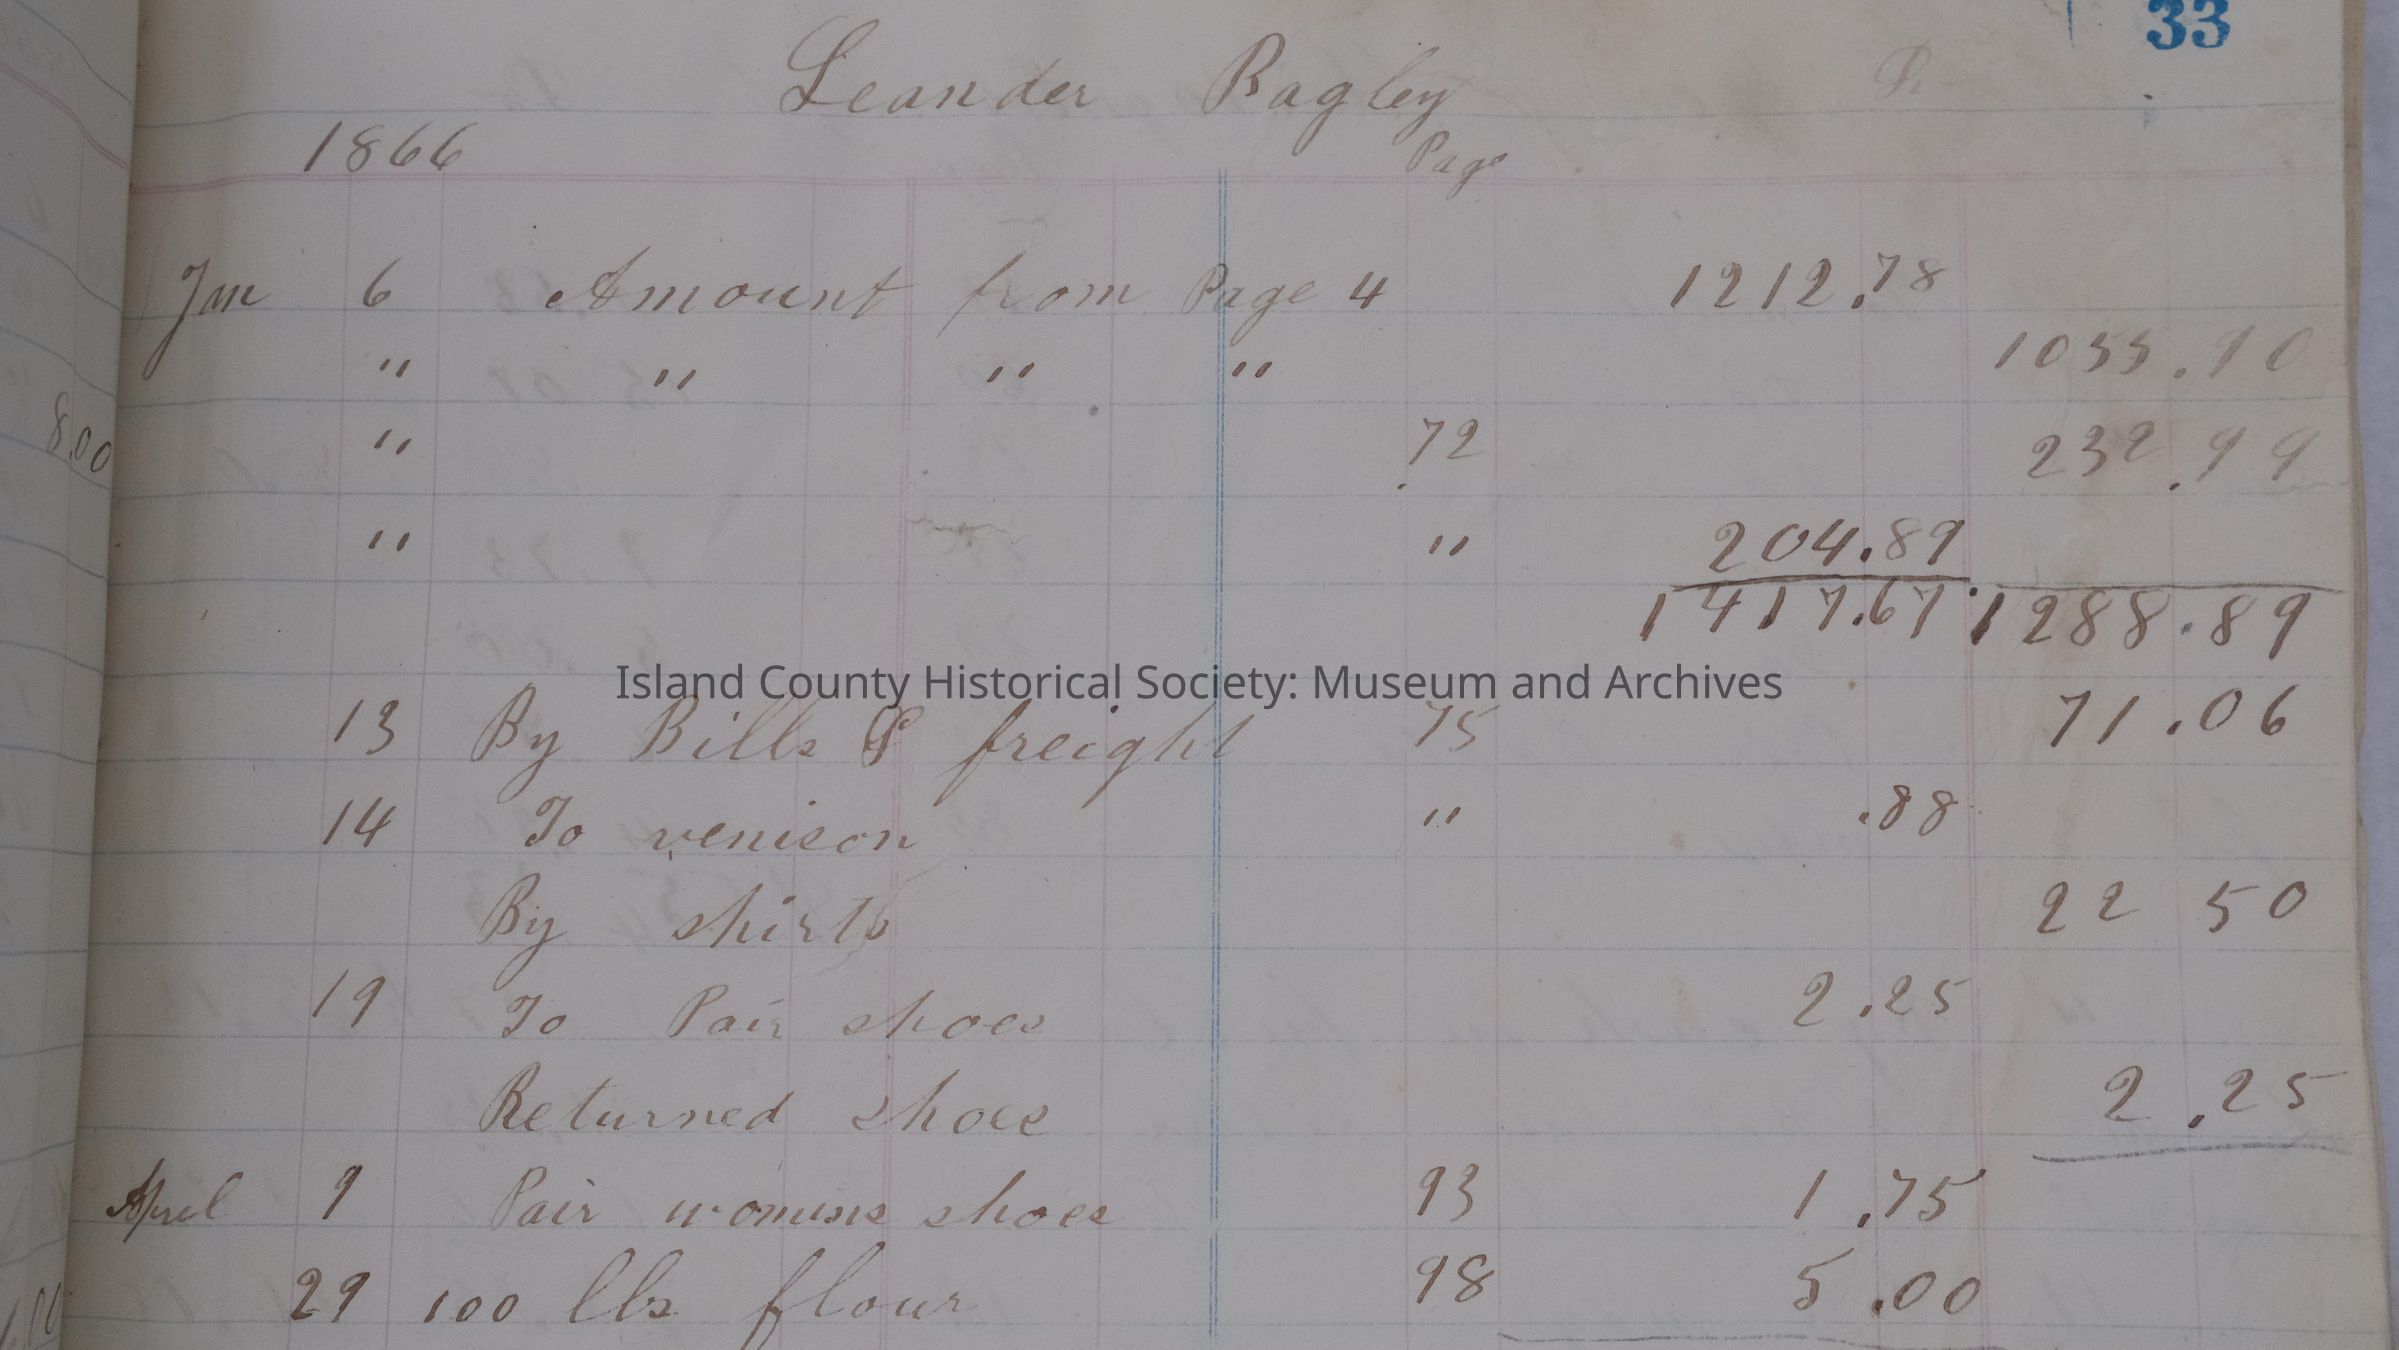 33
Leander Bagley
1866 Page
Jan 6 Amount from Page 4 1212.78
" " " " 1055.90
" 72 232.99
" " 204.89
1417.67 1288.89
Island County Historical Society: Museum and Archives
13 By Bills & freight 75 71.06
14 To venison " .88
By shirts 22 50
19 To Pair shoes 2.25
Returned shoes 2.25
April 9 Pair womens shoes 93 1.75
29 100 lbs flour 98 5.00
8.00